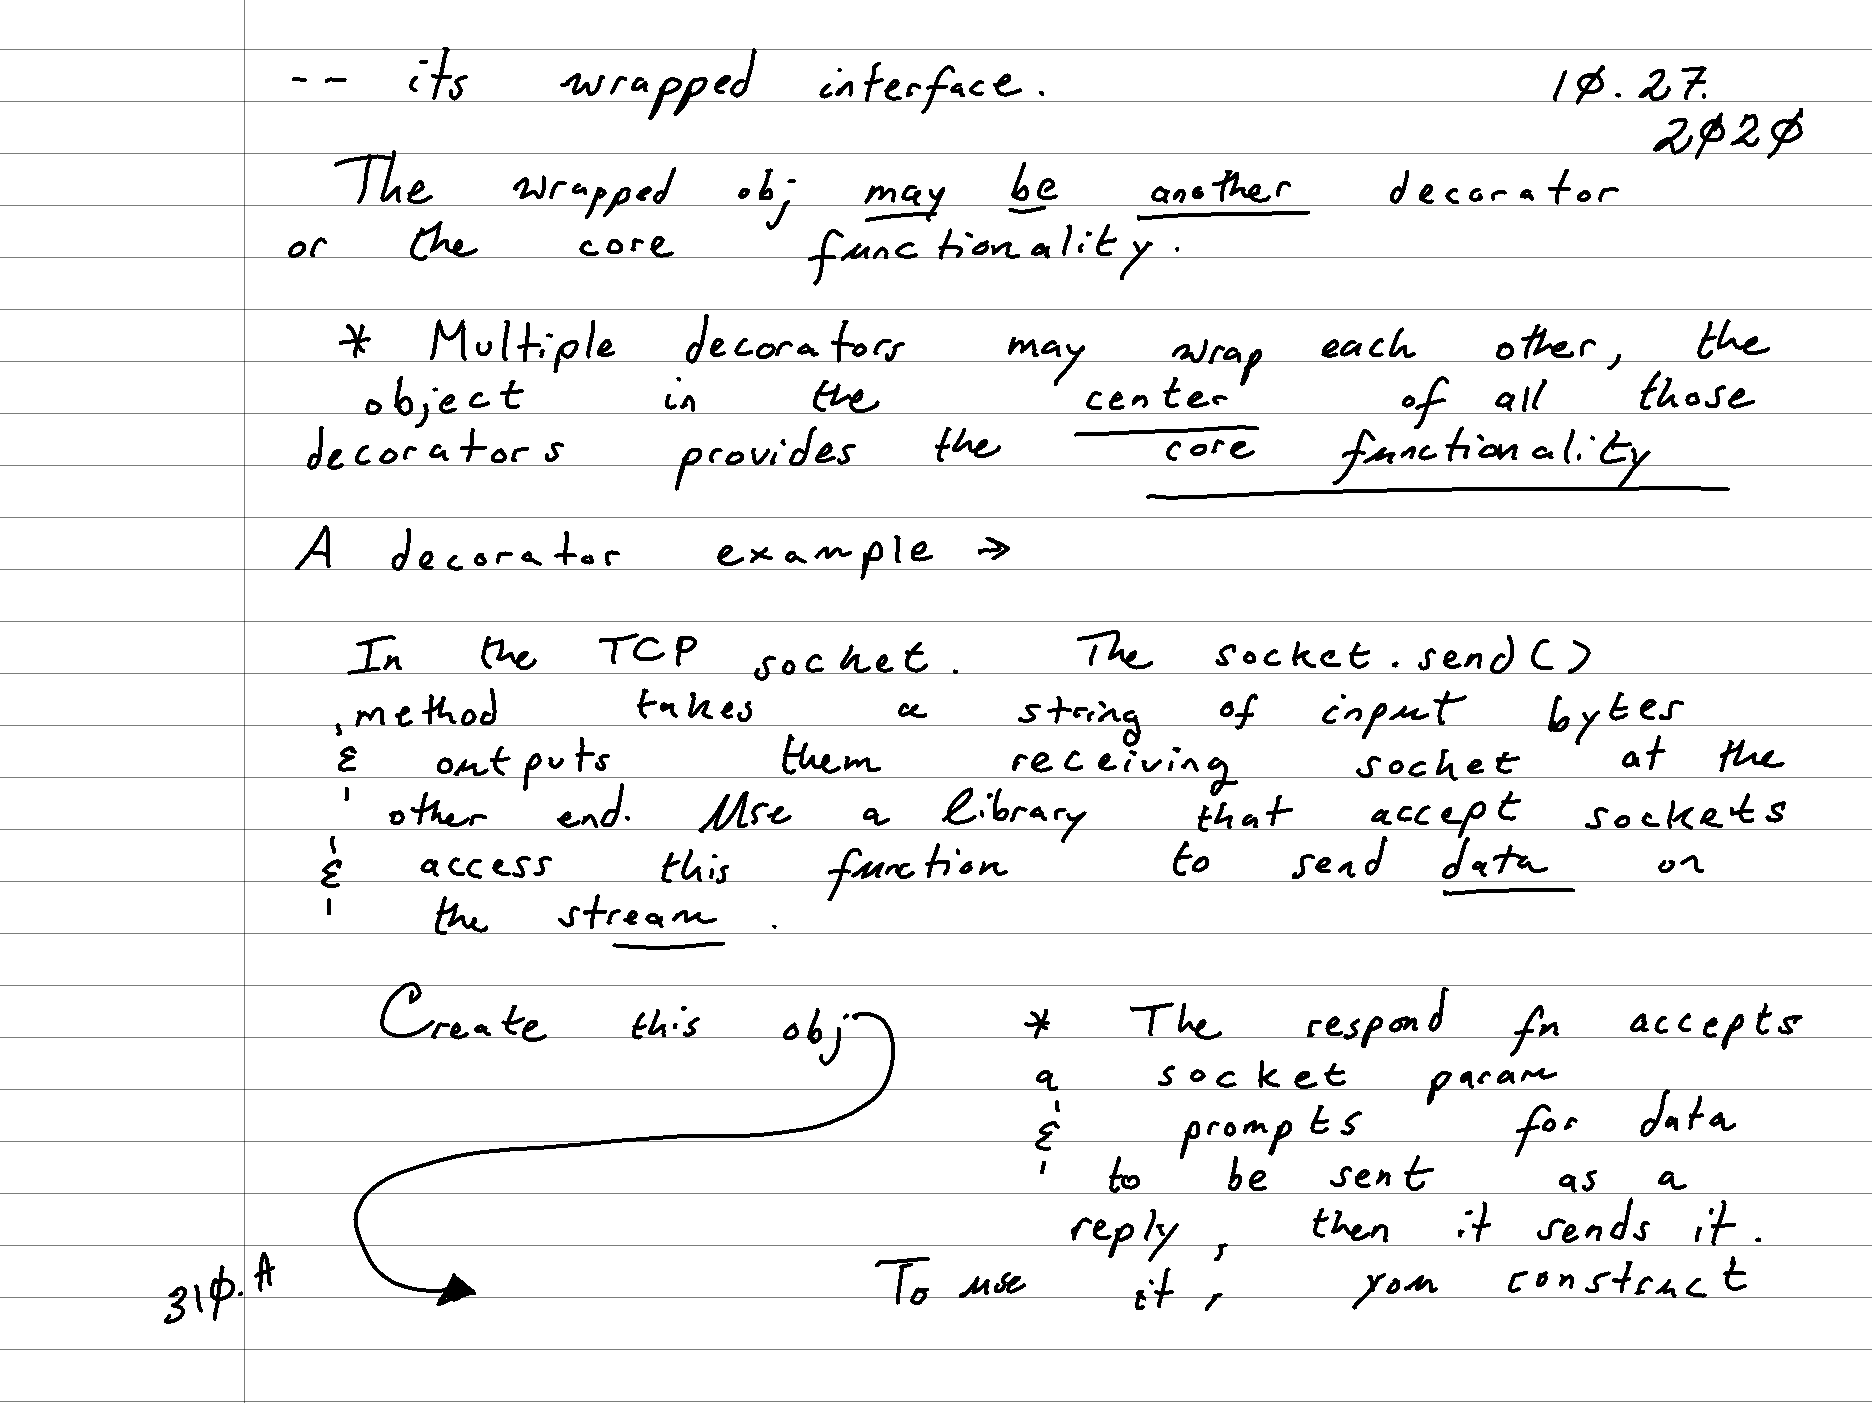 -- its wrapped interface.
10.27.
2020
The wrapped obj may be another decorator
or the core functionality.
* Multiple decorators may wrap each other, the
object in the center of all those
decorators provides the core functionality
A decorator example →
In the TCP socket. The socket.send()
method takes a string of input bytes
& outputs them receiving socket at the
other end. Use a library that accept sockets
& access this function to send data on
the stream.
Create this obj
* The respond fn accepts
a socket param
& prompts for data
to be sent as a
reply, then it sends it.
To use it, you construct
310.A